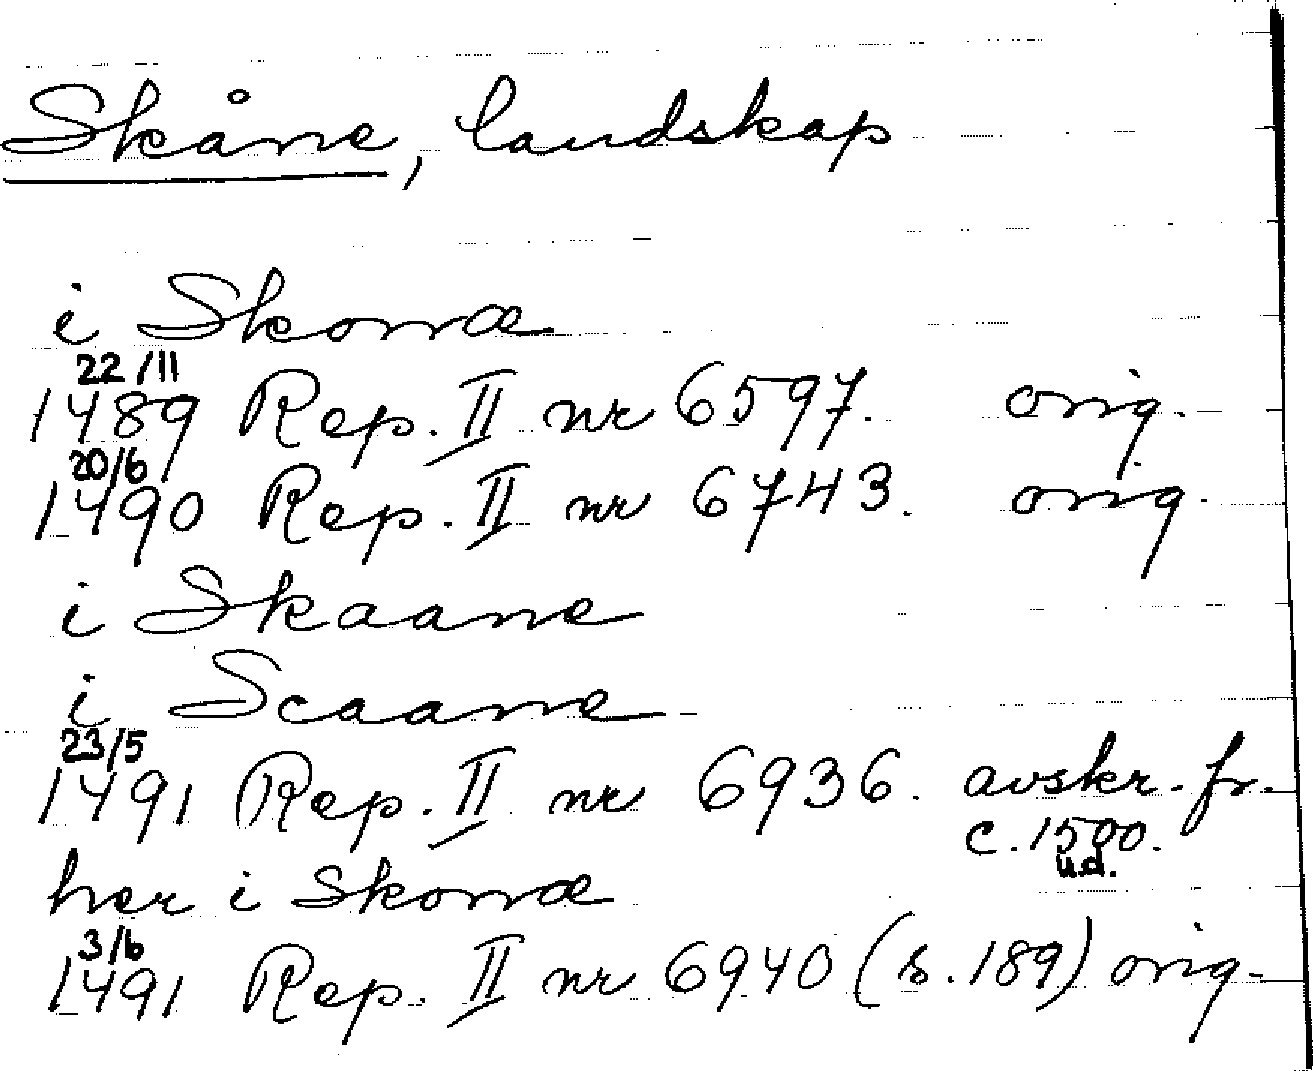 Skåne, landskap
i Skonæ
22/11
1489 Rep. II nr 6597. orig.
20/6
1490 Rep. II nr 6743. orig.
i Skaane
i Scaane
23/5
1491 Rep. II nr 6936. avskr. fr.
c. 1500.
u.d.
her i Skonæ
3/6
1491 Rep. II nr 6940 (s. 189) orig.